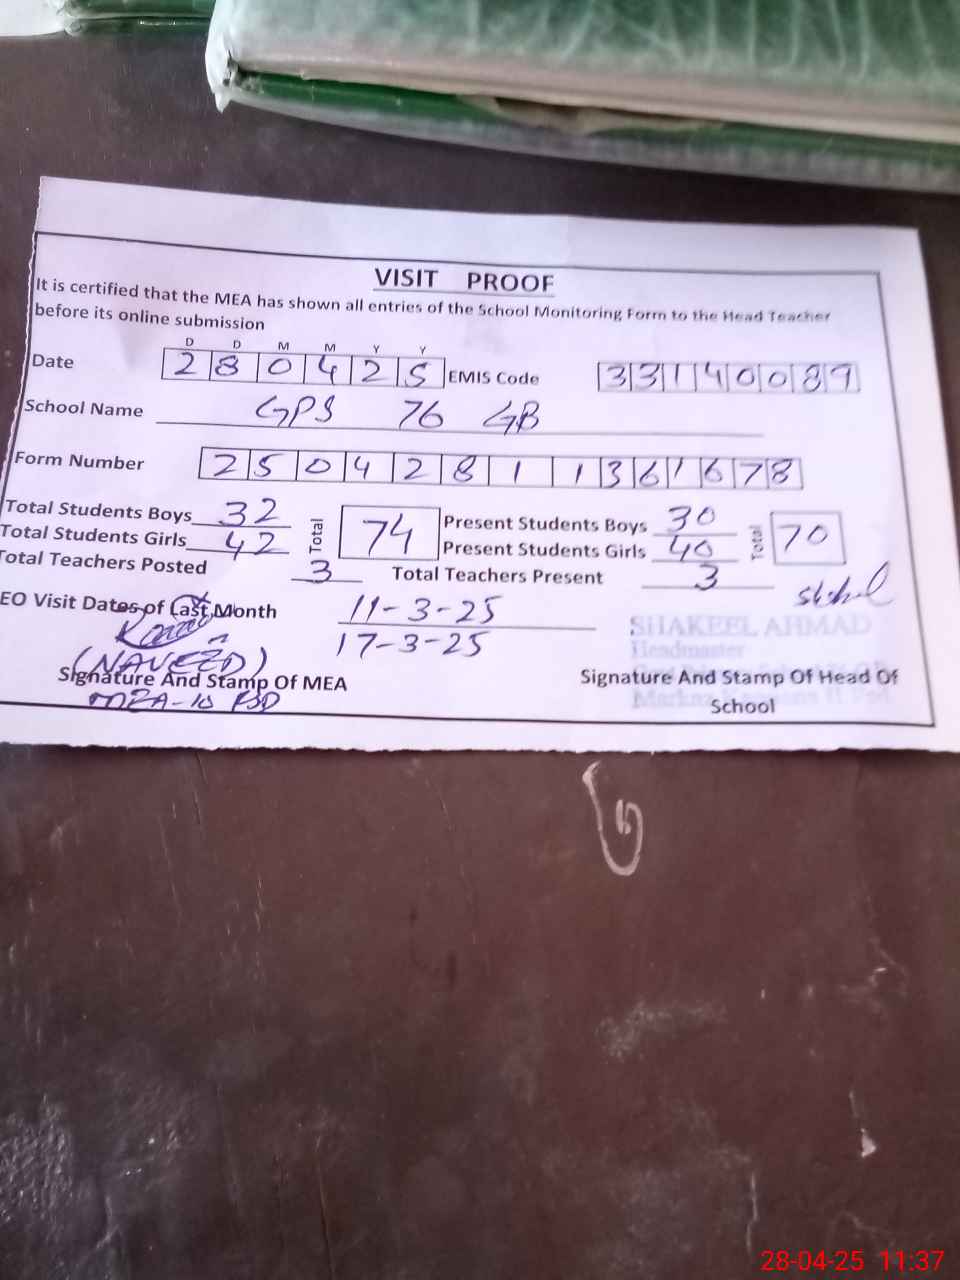 VISIT PROOF
It is certified that the MEA has shown all entries of the School Monitoring Form to the Head Teacher
before its online submission
D D M M Y Y
Date 2 8 0 4 2 5 EMIS Code 3 3 1 4 0 0 8 9
School Name GPS 76 GB
Form Number 2 5 0 4 2 8 1 1 3 6 1 6 7 8
Total Students Boys 32 Total 74 Present Students Boys 30 Total 70
Total Students Girls 42 Present Students Girls 40
Total Teachers Posted 3 Total Teachers Present 3
EO Visit Dates of Last Month 11-3-25
17-3-25
SHAKEEL AHMAD
Headmaster
(NAVEED)
Signature And Stamp Of MEA
MEA-10 FSD
Signature And Stamp Of Head Of
School
28-04-25 11:37